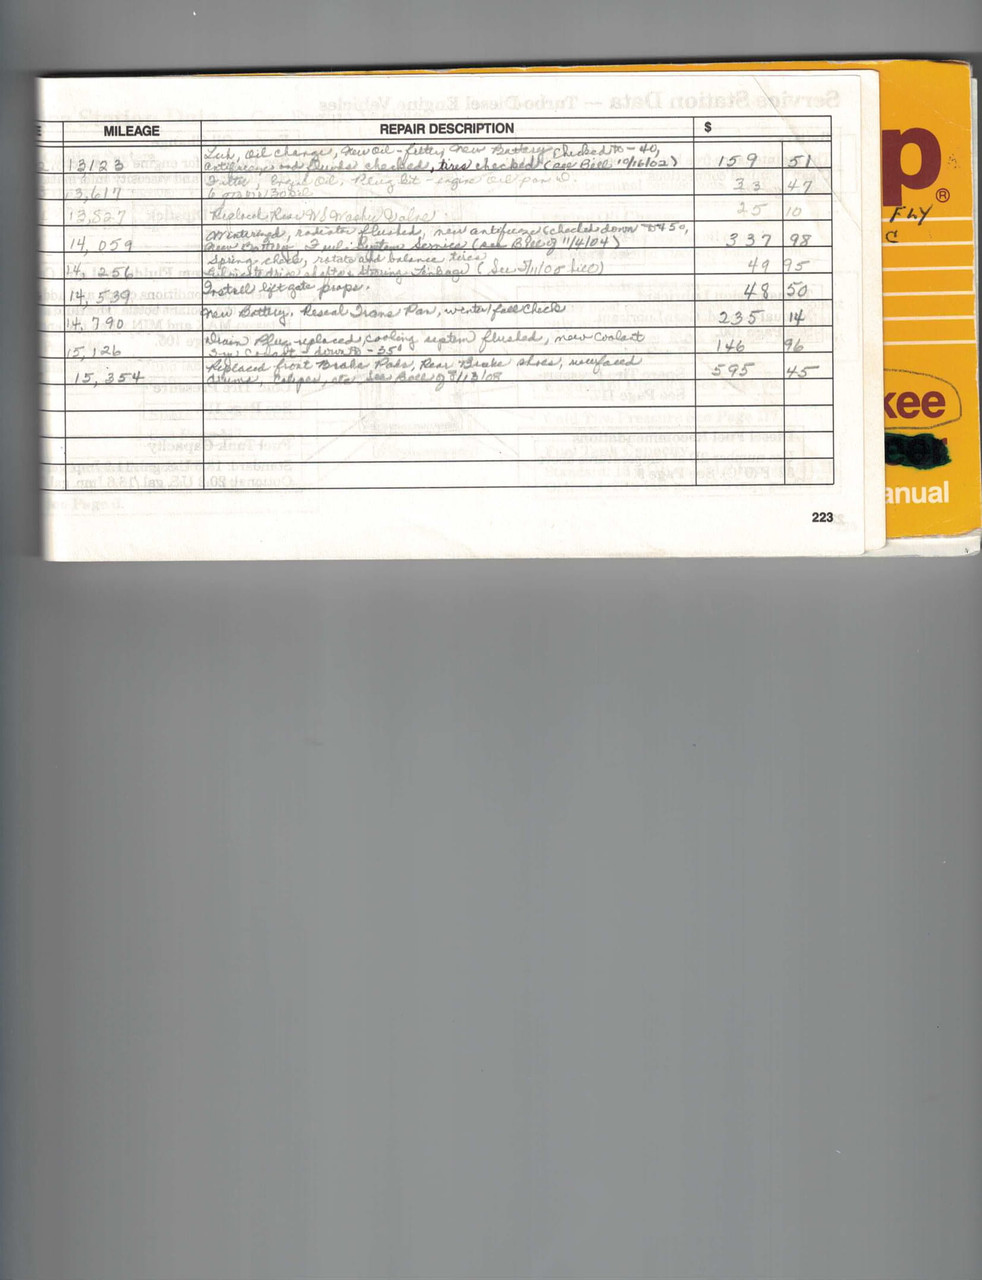 MILEAGE REPAIR DESCRIPTION $
Lub, Oil change, New Oil-filter, New Battery Checked to -40,
13123 antifreeze and checked, tires checked (see Bill 10/16/02) 159 51
Filter, Engine Oil, Plug kit - engine oil pan
13,617 33 47
13,827 Replaced Rear WS Washer Valve 25 10
Winterized, radiator flushed, new antifreeze (checked down to 45°,
14,059 new Battery, Fuel System Service (see Bill of 11/4/04) 337 98
Spring check, rotate and balance tires
14,256 drive shaft & Steering Linkage (See 49 95
14,539 Install liftgate props. 48 50
New Battery, Reseal Trans Pan, winter/fall check
14,790 235 14
Drain Plug replaced, cooling system flushed, new coolant
15,126 down to -35° 146 96
Replaced front Brake Pads, Rear Brake shoes, resurfaced
15,354 drums, calipers, etc. See Bill of 8/13/08 595 45
223
p®
FLY
C
kee
anual
Service Station Data — Turbo-Diesel Engine Vehicles